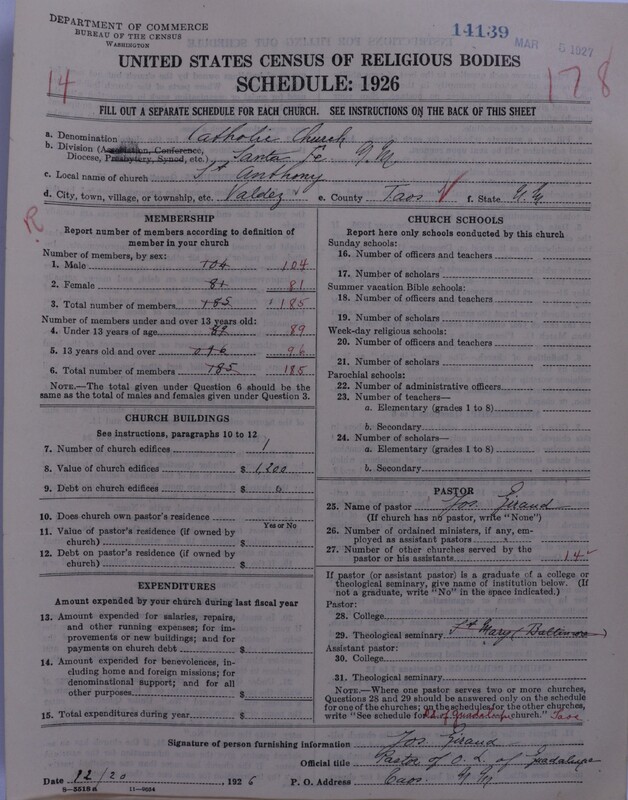 DEPARTMENT OF COMMERCE
BUREAU OF THE CENSUS
WASHINGTON
14139
MAR 5 1927
UNITED STATES CENSUS OF RELIGIOUS BODIES
SCHEDULE: 1926
14
178
FILL OUT A SEPARATE SCHEDULE FOR EACH CHURCH. SEE INSTRUCTIONS ON THE BACK OF THIS SHEET
a. Denomination Catholic Church
b. Division (Association, Conference, Diocese, Presbytery, Synod, etc.) Santa Fe N.M.
c. Local name of church St Anthony
d. City, town, village, or township, etc. Valdez e. County Taos f. State N.M.
R
MEMBERSHIP
Report number of members according to definition of
member in your church
Number of members, by sex:
1. Male 104 104
2. Female 81 81
3. Total number of members 185 185
Number of members under and over 13 years old:
4. Under 13 years of age 89 89
5. 13 years old and over 096 96
6. Total number of members 185 185
NOTE.—The total given under Question 6 should be the
same as the total of males and females given under Question 3.
CHURCH BUILDINGS
See instructions, paragraphs 10 to 12
7. Number of church edifices 1
8. Value of church edifices $ 1,200
9. Debt on church edifices $ 0
10. Does church own pastor's residence
Yes or No
11. Value of pastor's residence (if owned by
church) $
12. Debt on pastor's residence (if owned by
church) $
EXPENDITURES
Amount expended by your church during last fiscal year
13. Amount expended for salaries, repairs,
and other running expenses; for im-
provements or new buildings; and for
payments on church debt $
14. Amount expended for benevolences, in-
cluding home and foreign missions; for
denominational support; and for all
other purposes $
15. Total expenditures during year $
CHURCH SCHOOLS
Report here only schools conducted by this church
Sunday schools:
16. Number of officers and teachers
17. Number of scholars
Summer vacation Bible schools:
18. Number of officers and teachers
19. Number of scholars
Week-day religious schools:
20. Number of officers and teachers
21. Number of scholars
Parochial schools:
22. Number of administrative officers
23. Number of teachers—
a. Elementary (grades 1 to 8)
b. Secondary
24. Number of scholars—
a. Elementary (grades 1 to 8)
b. Secondary
PASTOR
25. Name of pastor Jos. Giraud
(If church has no pastor, write "None")
26. Number of ordained ministers, if any, em-
ployed as assistant pastors
27. Number of other churches served by the
pastor or his assistants 14
If pastor (or assistant pastor) is a graduate of a college or
theological seminary, give name of institution below. (If
not a graduate, write "No" in the space indicated.)
Pastor:
28. College
29. Theological seminary St Mary (Baltimore)
Assistant pastor:
30. College
31. Theological seminary
NOTE.—Where one pastor serves two or more churches,
Questions 28 and 29 should be answered only on the schedule
for one of the churches; on the schedules for the other churches,
write "See schedule for O.L. of Guadalupe church." Taos
Signature of person furnishing information Jos Giraud
Official title Pastor of O. L. of Guadalupe
Date 12/20 1926 P. O. Address Taos. N.M.
8-5518a 11-9034